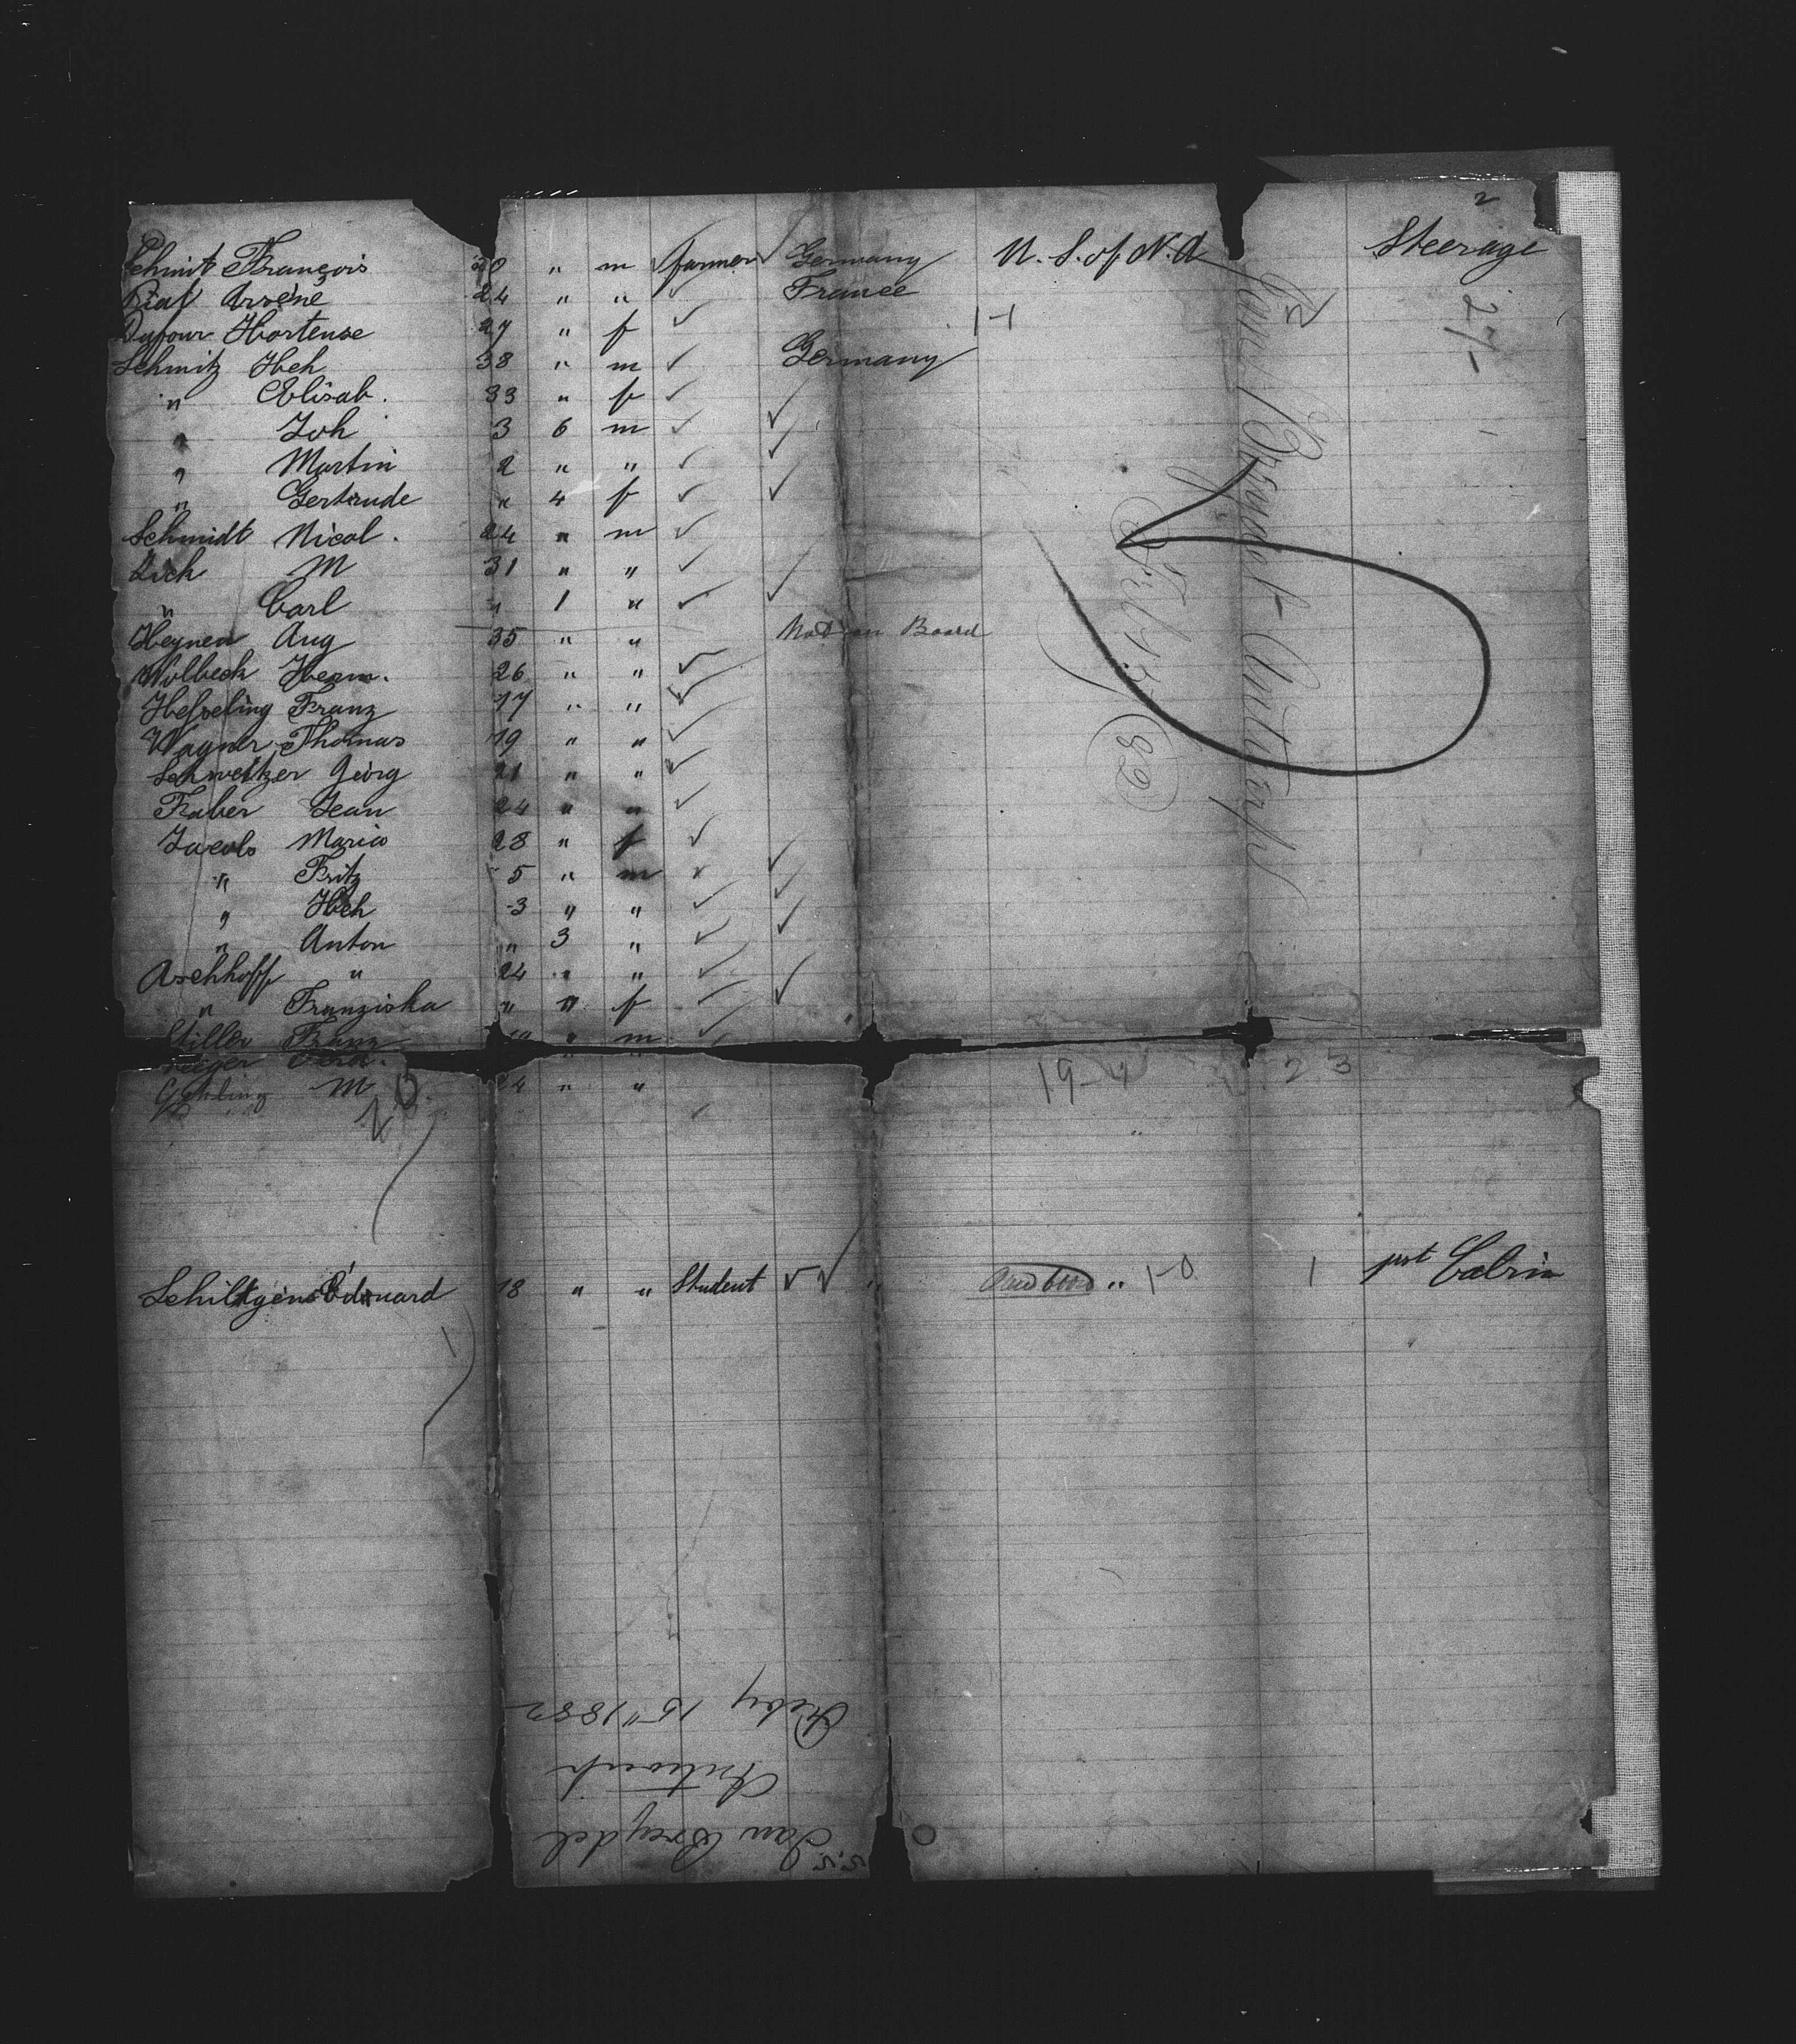 2
Schmit François 30 " m farmer Germany U. S. of N. A Steerage
Piat Arsène 24 " " France
Dufour Hortense 27 " f 1-1
Schmitz Hch 38 " m Germany
" Elisab. 33 " f
" Joh 3 6 m
" Martin 2 " "
" Gertrude " 4 f
Schmidt Nicol. 24 " m
Zich M 31 " "
" Carl " 1 "
Heynen Aug 35 " " Not on Board
Wolbeck Herm. 26 " "
Hesseling Franz 17 " "
Wagner Thomas 19 " "
Schweitzer Georg 21 " "
Faber Jean 24 " "
Jacobs Maria 28 " f
" Fritz 5 " m
" Hch 3 " "
" Anton " 3 "
Aschhoff " 24 " "
" Franziska " " f
Stiller Franz " m
Ferd. " "
Gehling M 24 " "
27-
Jan Breydel Antwerp
Feb 15
82
19-4 23
Schiltgens Édouard 18 " " Student " " 1-0 1 Cabin
S.S. Jan Breydel
Antwerp
Feby 15" 1882